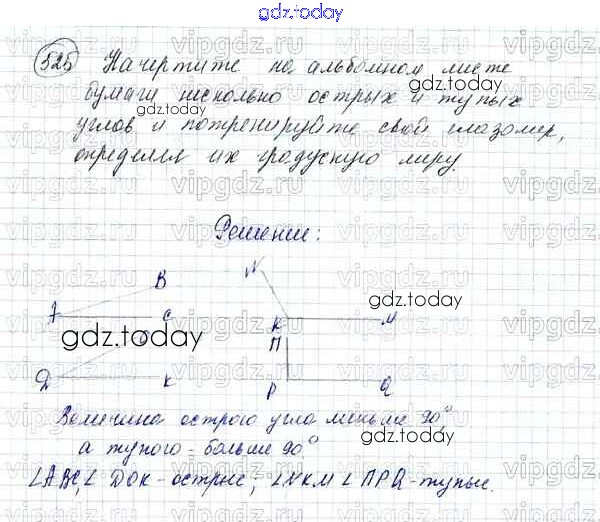 gdz.today
525 Начертите на альбомном листе
gdz.today
бумаги несколько острых и тупых
gdz.today
углов и потренируйте свой глазомер,
определяя их градусную меру.
Решение:
B N
A C gdz.today
K M
gdz.today П
Д К P Q
Величина острого угла меньше 90°
gdz.today
а тупого - больше 90°
∠ABC, ∠ DOK - острые; ∠NKM ∠ ПPQ - тупые.
vipgdz.ru